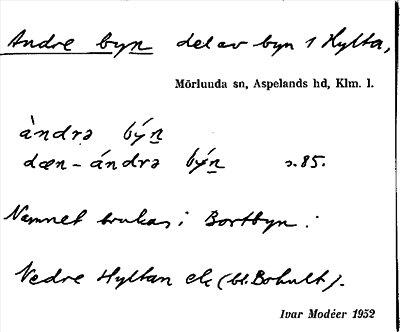 Andre byn del av byn 1 Hylta,
Mörlunda sn, Aspelands hd, Klm. l.
àndrə býn
dæn-ándrə býn s. 85.
Namnet brukas i Bortbyn.
Nedre Hyltan etc (bl. Bohult).
Ivar Modéer 1952